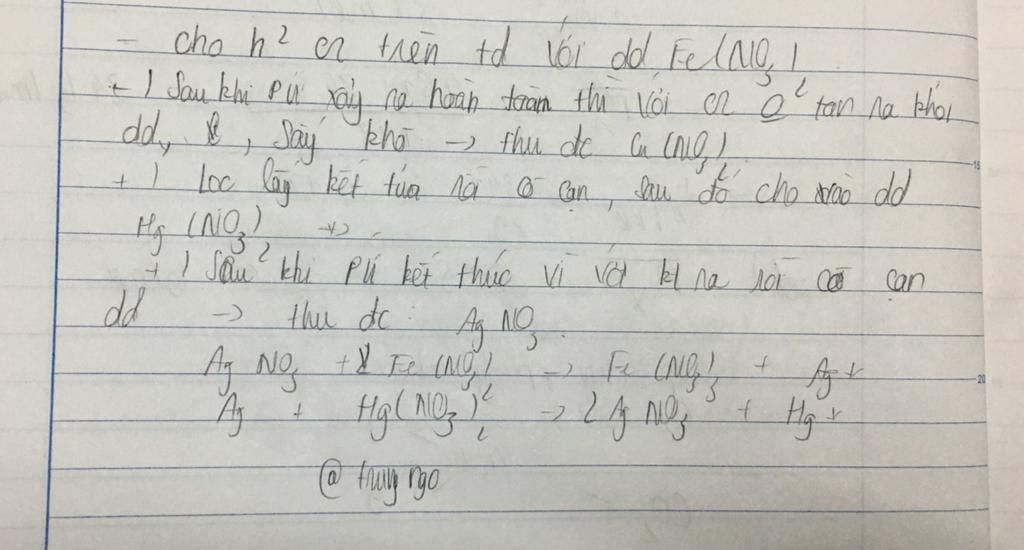 - cho h² cr trên td với dd Fe(NO3)2
+) Sau khi pứ xảy ra hoàn toàn thì vớt cr o tan ra khỏi
dd, sấy khô -> thu dc Cu(NO3)2
+) Lọc lấy kết tủa rồi cô cạn, sau đó cho vào dd
Hg(NO3)2
+) Sau khi pứ kết thúc vì vớt kl ra rồi cô cạn
dd -> thu dc: AgNO3.
AgNO3 + Fe(NO3)2 -> Fe(NO3)3 + Ag↓
Ag + Hg(NO3)2 -> 2AgNO3 + Hg↓
@ trung ngo